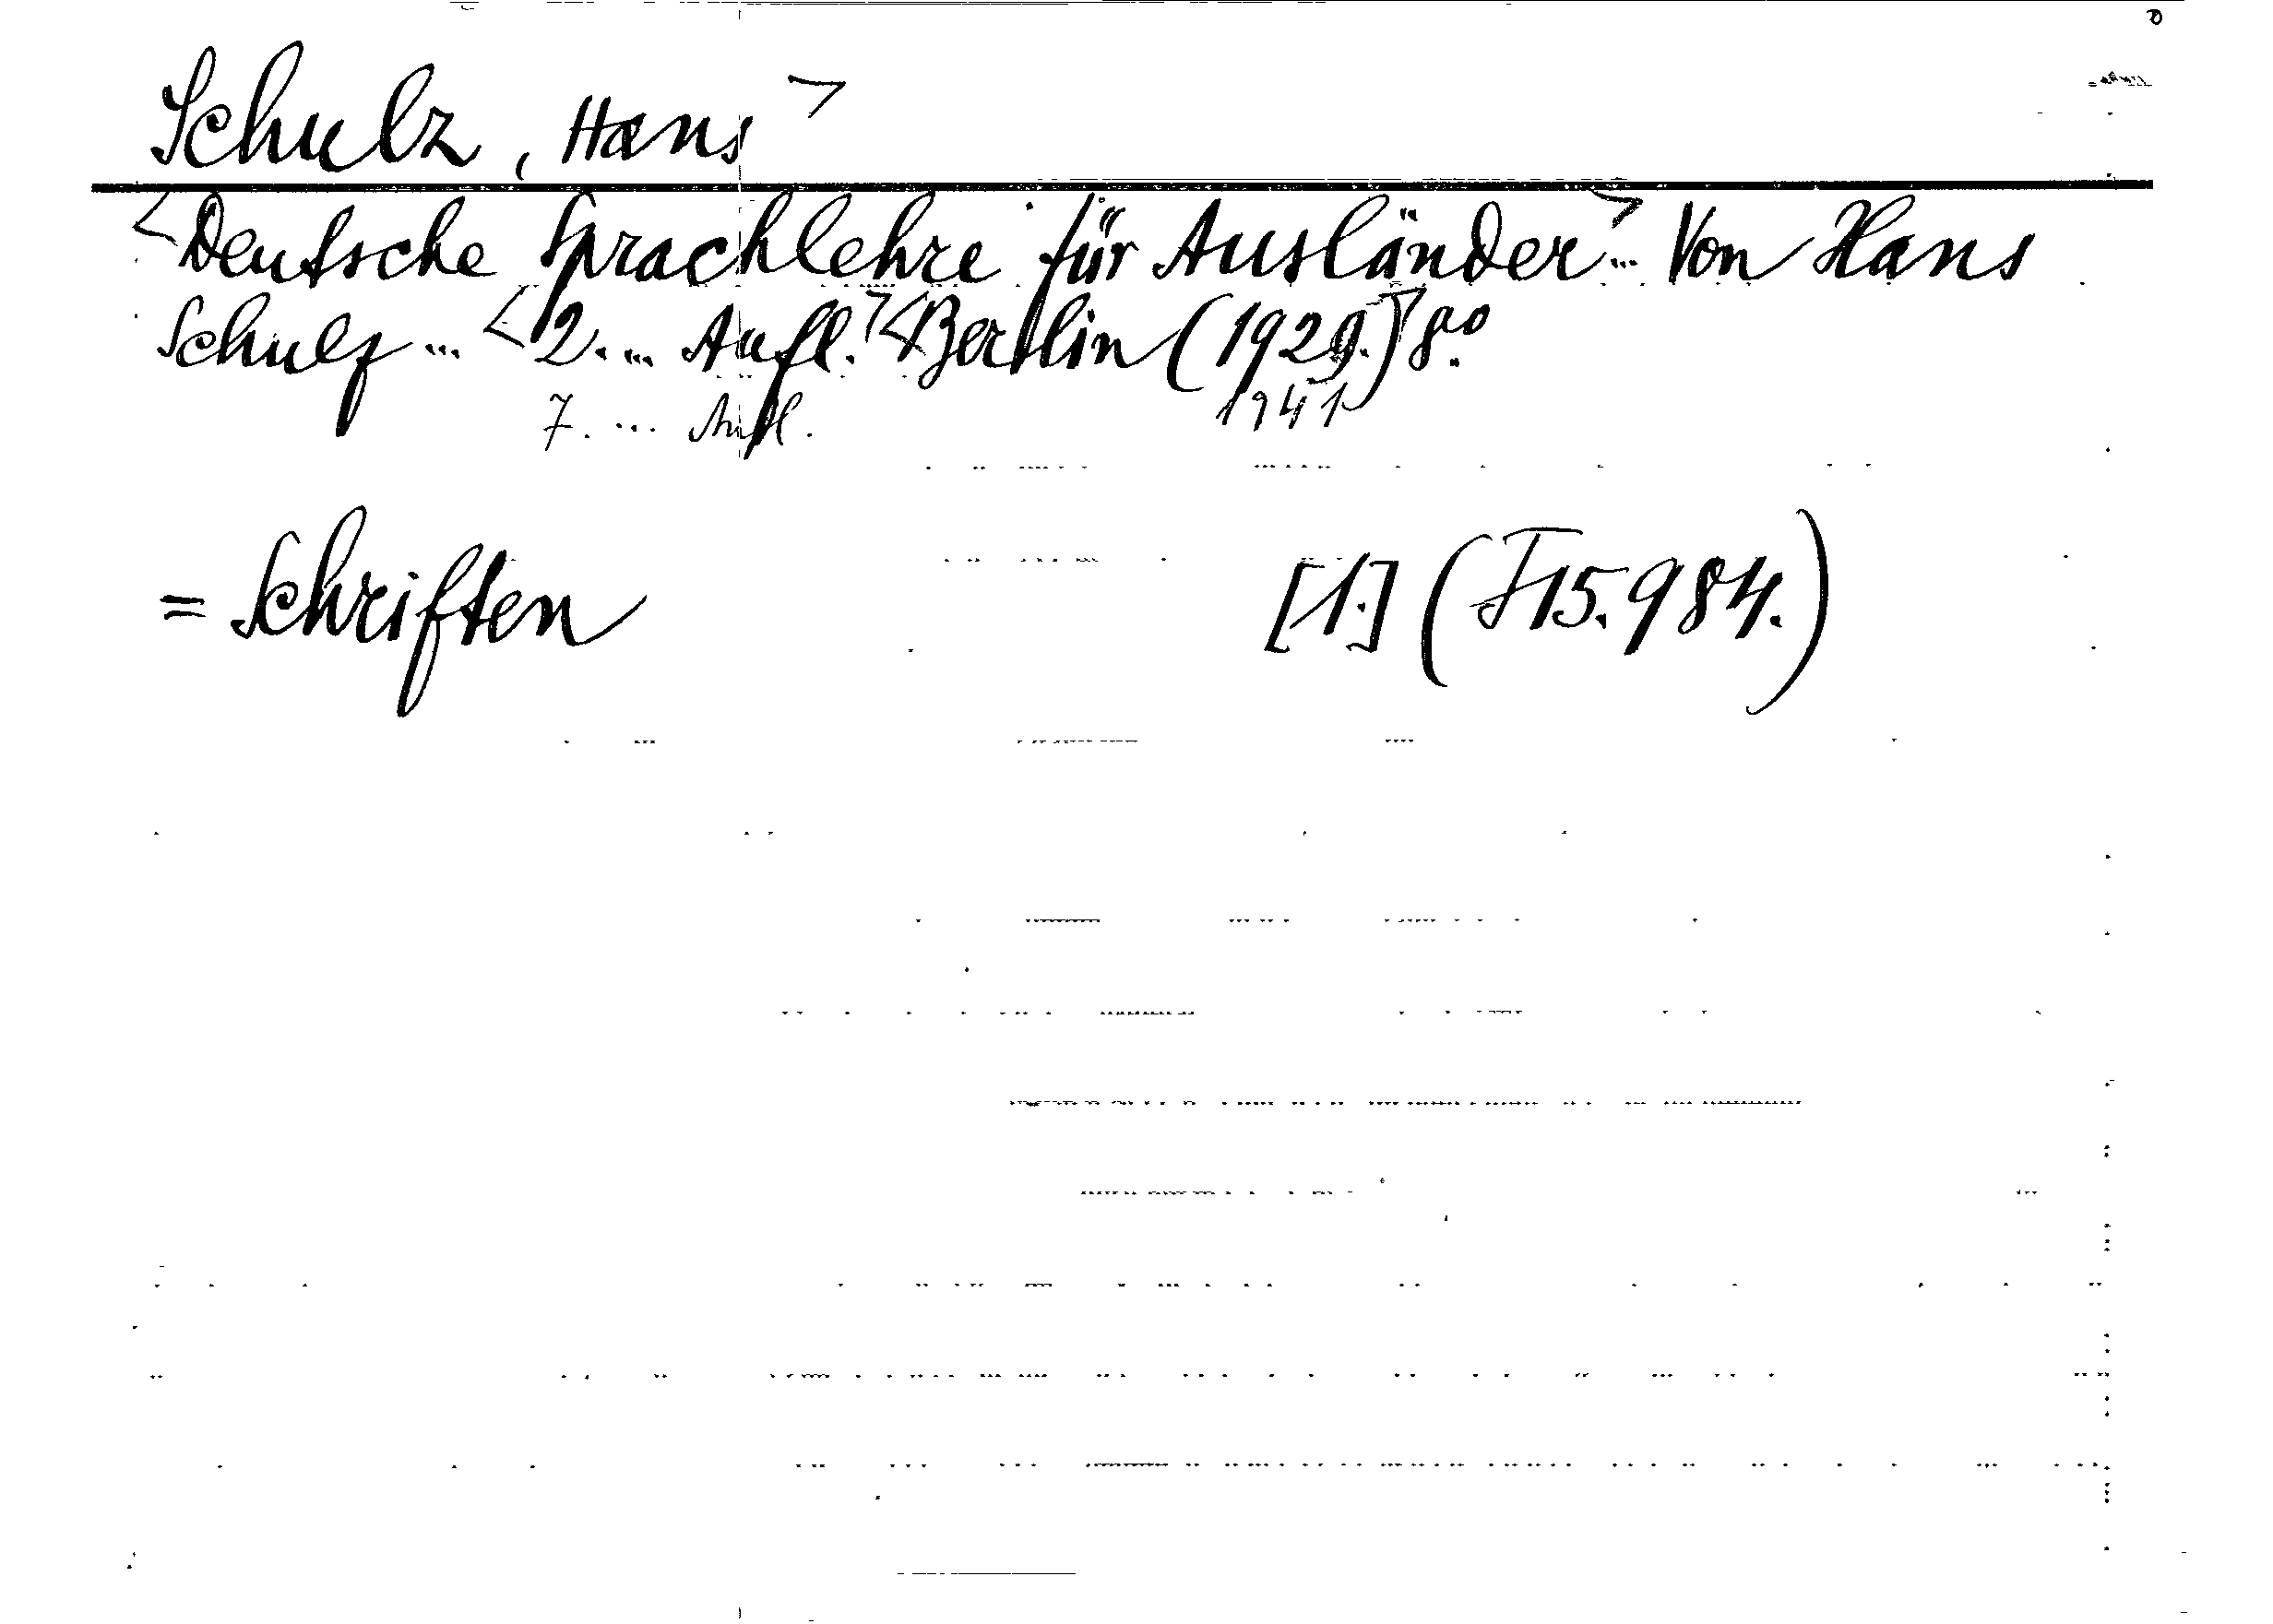 Schulz, Hans >
<Deutsche Sprachlehre für Ausländer> ... Von Hans
Schulz ... <2. ... Aufl.> <Berlin (1929.)> 8.°
7. ... Aufl. 1941
= Schriften [1.] (F 15.984.)